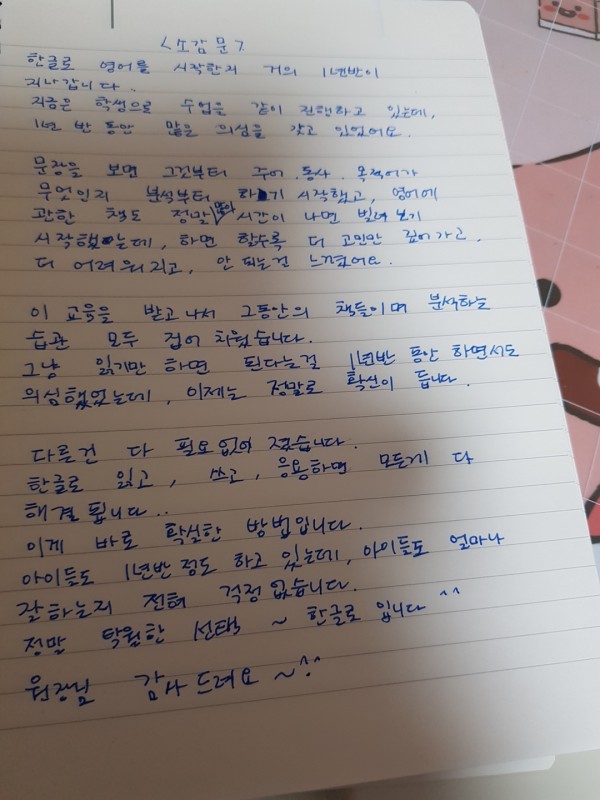 <소감문>
한글로 영어를 시작한지 거의 1년반이
지나갑니다.
지금은 학생으로 수업을 같이 진행하고 있는데,
1년 반 동안 많은 의심을 갖고 있었어요.
문장을 보면 그것부터 주어. 동사. 목적어가
무엇인지 분석부터 하기 시작했고, 영어에
관한 책도 정말 많이 시간이 나면 빌려 보기
시작했는데, 하면 할수록 더 고민만 깊어가고,
더 어려워지고, 안 되는걸 느꼈어요.
이 교육을 받고 나서 그동안의 책들이며 분석하는
습관 모두 접어 치웠습니다.
그냥 읽기만 하면 된다는걸 1년반 동안 하면서도
의심했었는데, 이제는 정말로 확신이 듭니다.
다른건 다 필요없어졌습니다.
한글로 읽고, 쓰고, 응용하면 모든게 다
해결됩니다..
이게 바로 확실한 방법입니다.
아이들도 1년반 정도 하고 있는데, 아이들도 얼마나
잘하는지 전혀 걱정 없습니다.
정말 탁월한 선택 ~ 한글로 입니다 ^^
원장님 감사드려요 ~^^